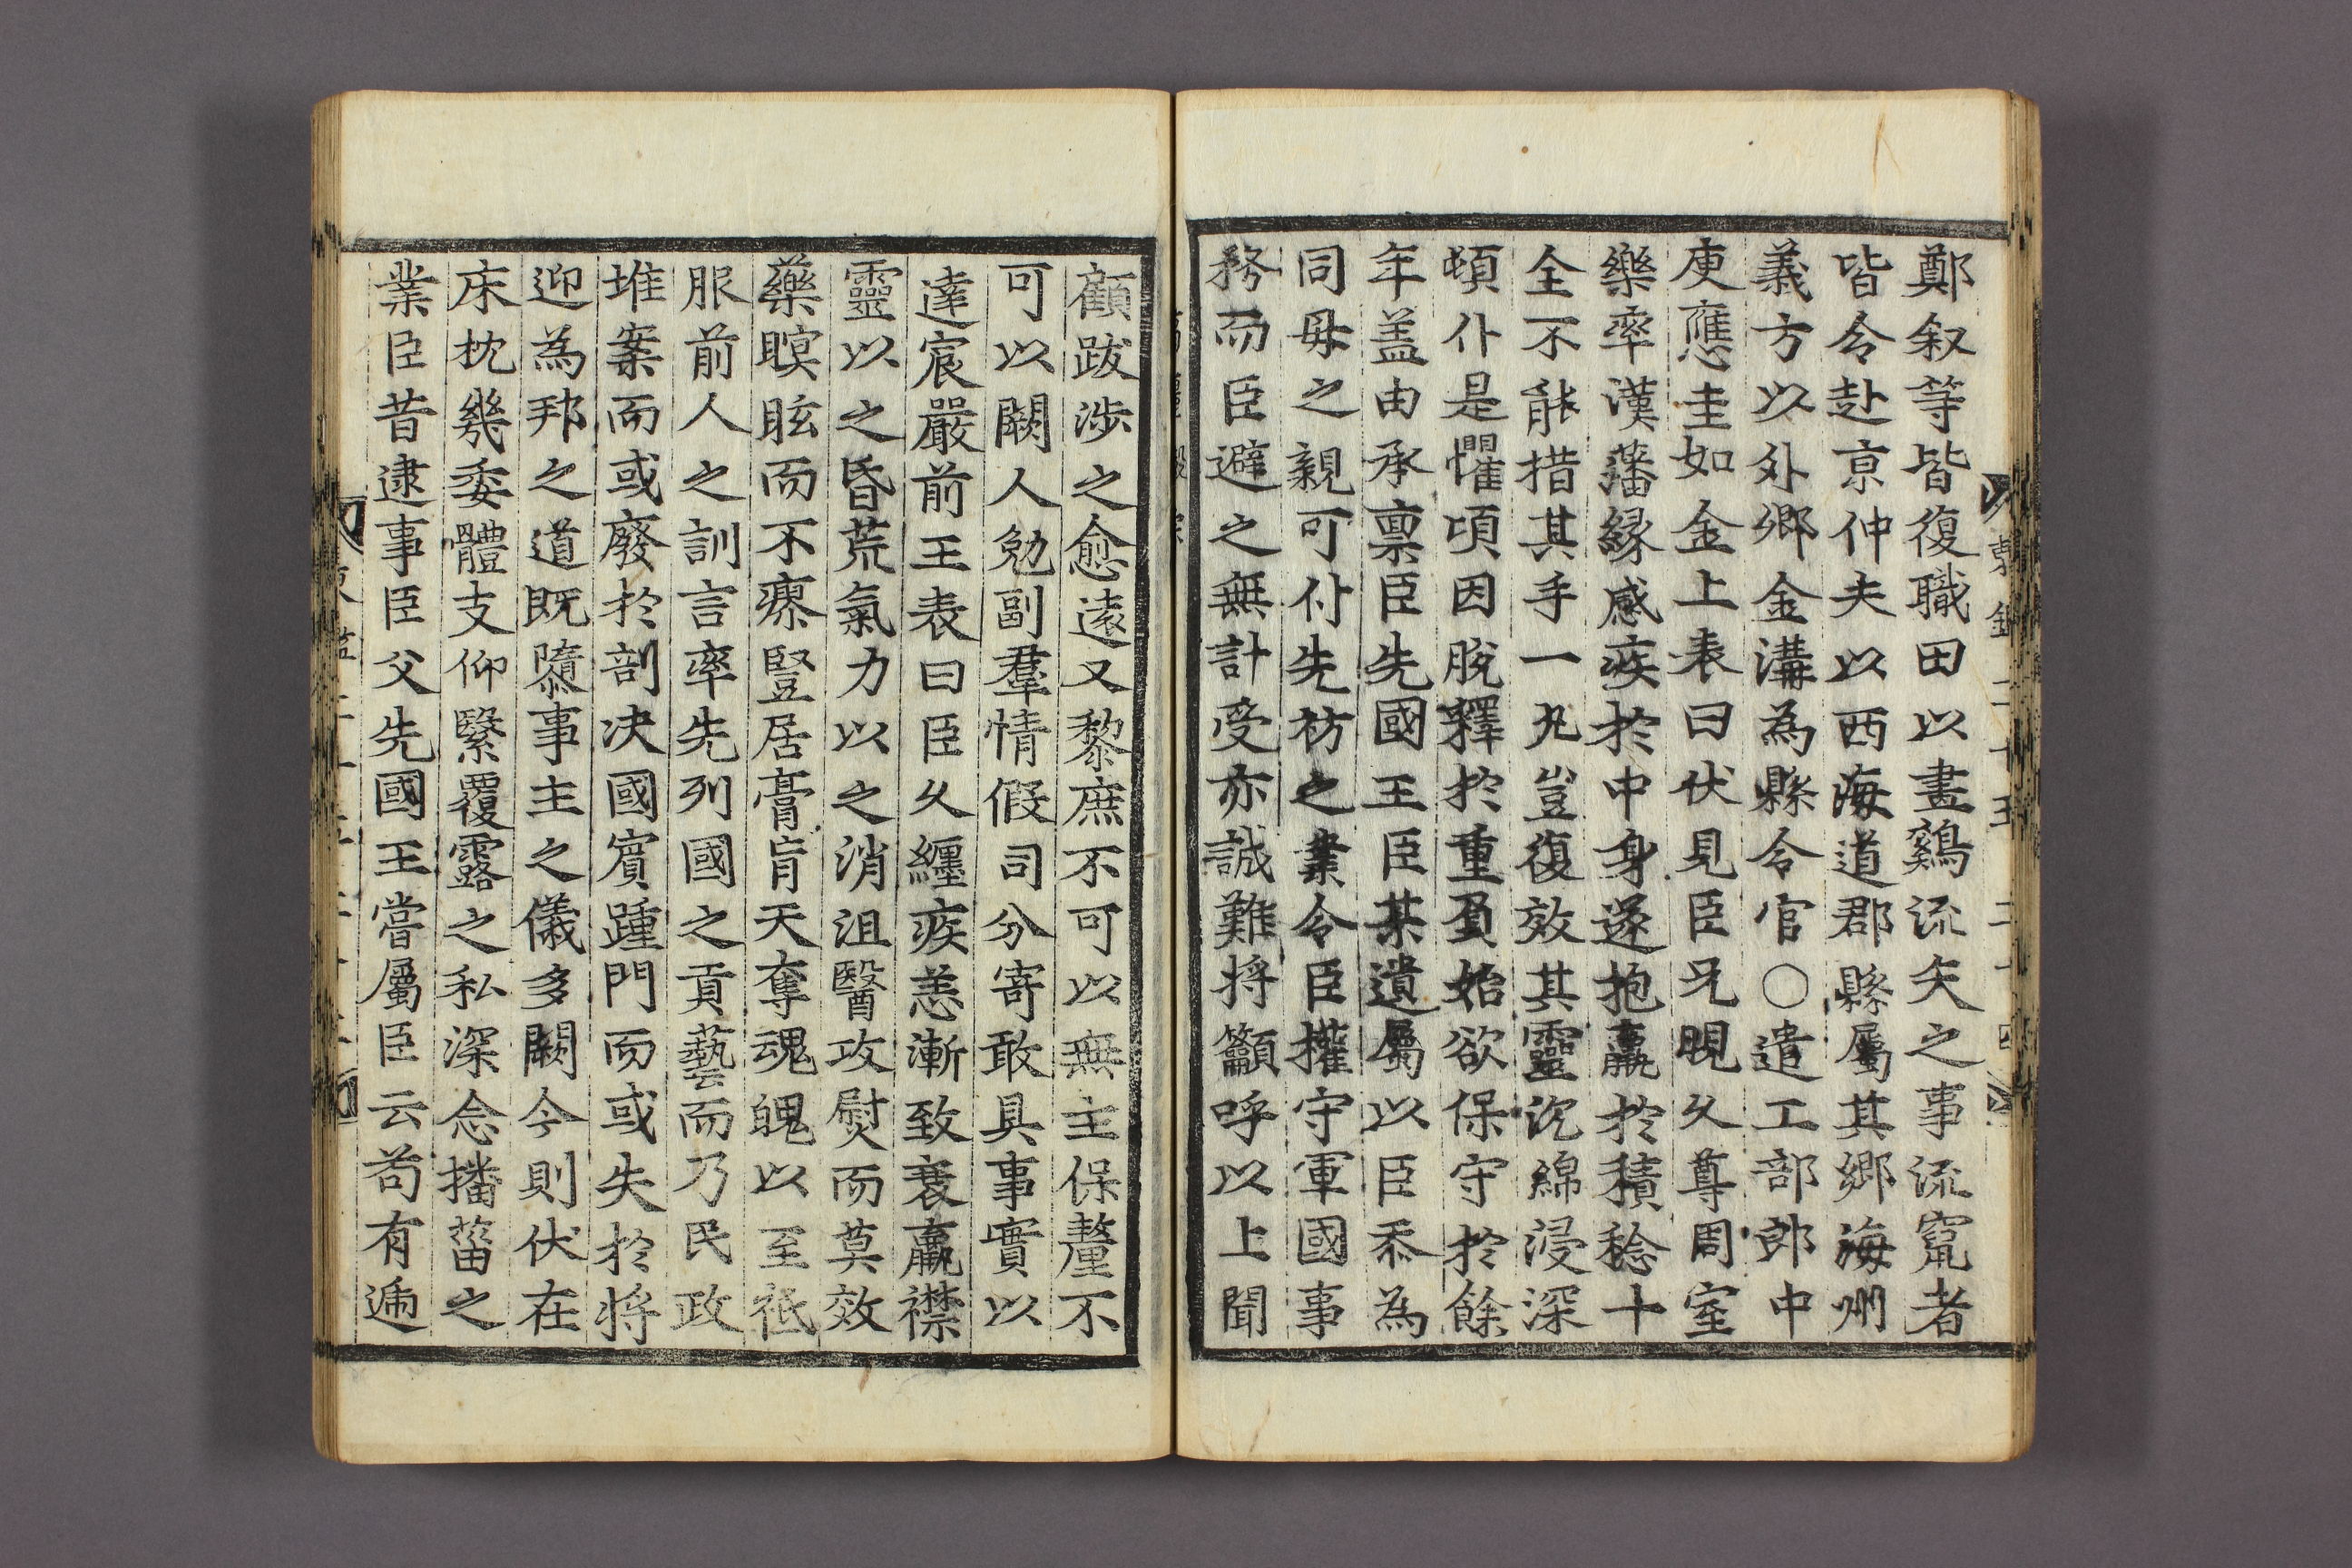 鄭叙等皆復職田以畫鷄流矢之事流竄者
皆令赴京仲夫以西海道郡縣屬其鄉海州
義方以外鄉金溝為縣令官○遣工部郎中
庾應圭如金上表曰伏見臣兄晛久尊周室
樂率漢藩緣感疾於中身遂抱羸於積稔十
全不能措其手一丸豈復效其靈沉綿浸深
頓仆是懼頃因脫釋於重負始欲保守於餘
年盖由承禀臣先國王臣某遺屬以臣忝為
同毋之親可付先祊之業令臣權守軍國事
務而臣避之無計受亦誠難將籲呼以上聞
顧跋涉之愈遠又黎庶不可以無主保釐不
可以闕人勉副羣情假司分寄敢具事實以
達宸嚴前王表曰臣久纏疾恙漸致衰羸襟
靈以之昏荒氣力以之消沮醫攻熨而莫效
藥瞑眩而不瘳豎居膏肓天奪魂魄以至祗
服前人之訓言率先列國之貢藝而乃民政
堆案而或廢於剖决國賓踵門而或失於將
迎為邦之道既隳事主之儀多闕今則伏在
床枕幾委體支仰緊覆露之私深念播菑之
業臣昔逮事臣父先國王嘗屬臣云苟有遁